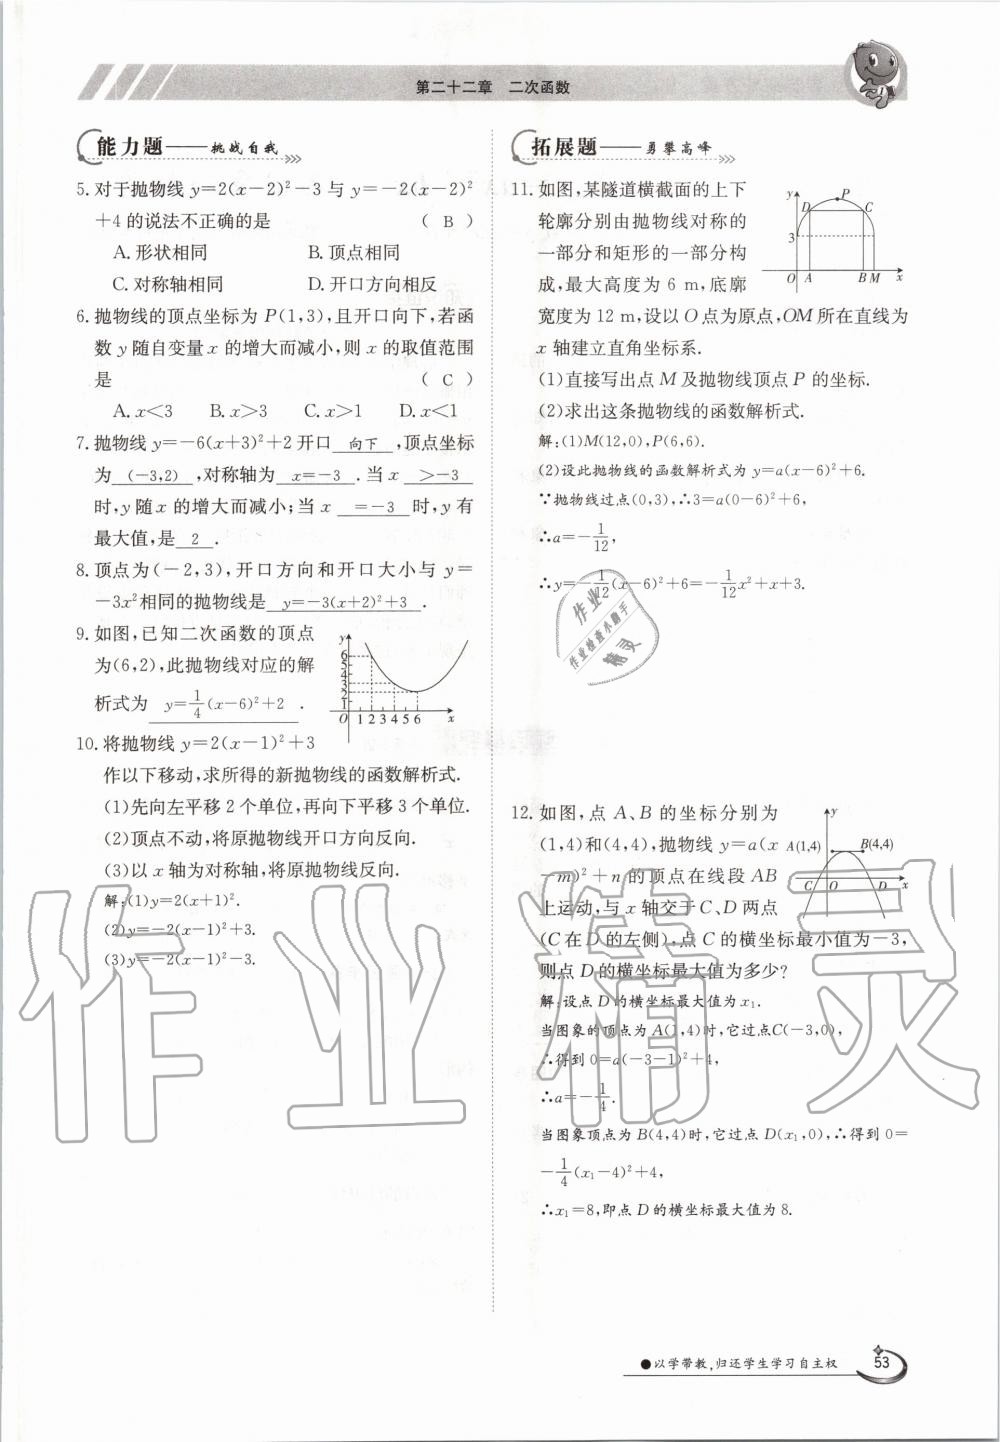 第二十二章 二次函数
能力题——挑战自我
5. 对于抛物线 y=2(x-2)²-3 与 y=-2(x-2)²
+4 的说法不正确的是 ( B )
A. 形状相同 B. 顶点相同
C. 对称轴相同 D. 开口方向相反
6. 抛物线的顶点坐标为 P(1,3),且开口向下,若函
数 y 随自变量 x 的增大而减小,则 x 的取值范围
是 ( C )
A. x<3 B. x>3 C. x>1 D. x<1
7. 抛物线 y=-6(x+3)²+2 开口 向下 ,顶点坐标
为 (-3,2) ,对称轴为 x=-3 . 当 x >-3
时,y 随 x 的增大而减小;当 x =-3 时,y 有
最大值,是 2 .
8. 顶点为(-2,3),开口方向和开口大小与 y=
-3x²相同的抛物线是 y=-3(x+2)²+3 .
9. 如图,已知二次函数的顶点
为(6,2),此抛物线对应的解
析式为 y=1/4(x-6)²+2 .
y
6
5
4
3
2
1
O 1 2 3 4 5 6 x
10. 将抛物线 y=2(x-1)²+3
作以下移动,求所得的新抛物线的函数解析式.
(1)先向左平移 2 个单位,再向下平移 3 个单位.
(2)顶点不动,将原抛物线开口方向反向.
(3)以 x 轴为对称轴,将原抛物线反向.
解:(1)y=2(x+1)².
(2)y=-2(x-1)²+3.
(3)y=-2(x-1)²-3.
拓展题——勇攀高峰
11. 如图,某隧道横截面的上下
轮廓分别由抛物线对称的
一部分和矩形的一部分构
成,最大高度为 6 m,底廓
宽度为 12 m,设以 O 点为原点,OM 所在直线为
x 轴建立直角坐标系.
y P
D C
3
O A B M x
(1)直接写出点 M 及抛物线顶点 P 的坐标.
(2)求出这条抛物线的函数解析式.
解:(1)M(12,0),P(6,6).
(2)设此抛物线的函数解析式为 y=a(x-6)²+6.
∵抛物线过点(0,3),∴3=a(0-6)²+6,
∴a=-1/12,
∴y=-1/12(x-6)²+6=-1/12x²+x+3.
作业
作业检查小助手
精灵
12. 如图,点 A、B 的坐标分别为
(1,4)和(4,4),抛物线 y=a(x
-m)²+n 的顶点在线段 AB
上运动,与 x 轴交于 C、D 两点
(C 在 D 的左侧),点 C 的横坐标最小值为-3,
则点 D 的横坐标最大值为多少?
y
A(1,4) B(4,4)
C O D x
解:设点 D 的横坐标最大值为 x₁.
当图象的顶点为 A(1,4)时,它过点C(-3,0),
∴得到 0=a(-3-1)²+4,
∴a=-1/4.
当图象顶点为 B(4,4)时,它过点 D(x₁,0),∴得到 0=
-1/4(x₁-4)²+4,
∴x₁=8,即点 D 的横坐标最大值为 8.
作业精灵
●以学带教,归还学生学习自主权
53